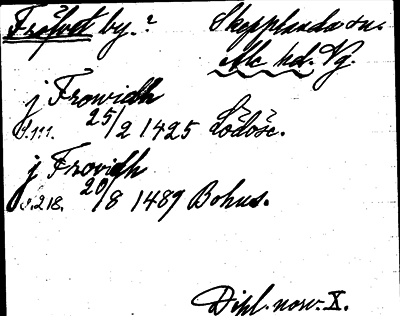 Fråstvet by.? Skepplanda sn.
Ale hd. Vg.
j Frowidh
s.111. 25/2 1425 Lödöse.
j Frovidh
s.218. 20/8 1489 Bohus.
Dipl. norv. X.